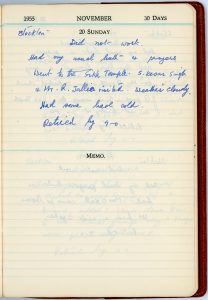 1955 NOVEMBER 30 DAYS
Stockton 20 SUNDAY
Did not work
Had my usual bath & prayers
Went to the Sikh Temple. S. Singh
& Mr. R. visited weather cloudy.
Had some bad cold.
Retired by 9-0.
MEMO.